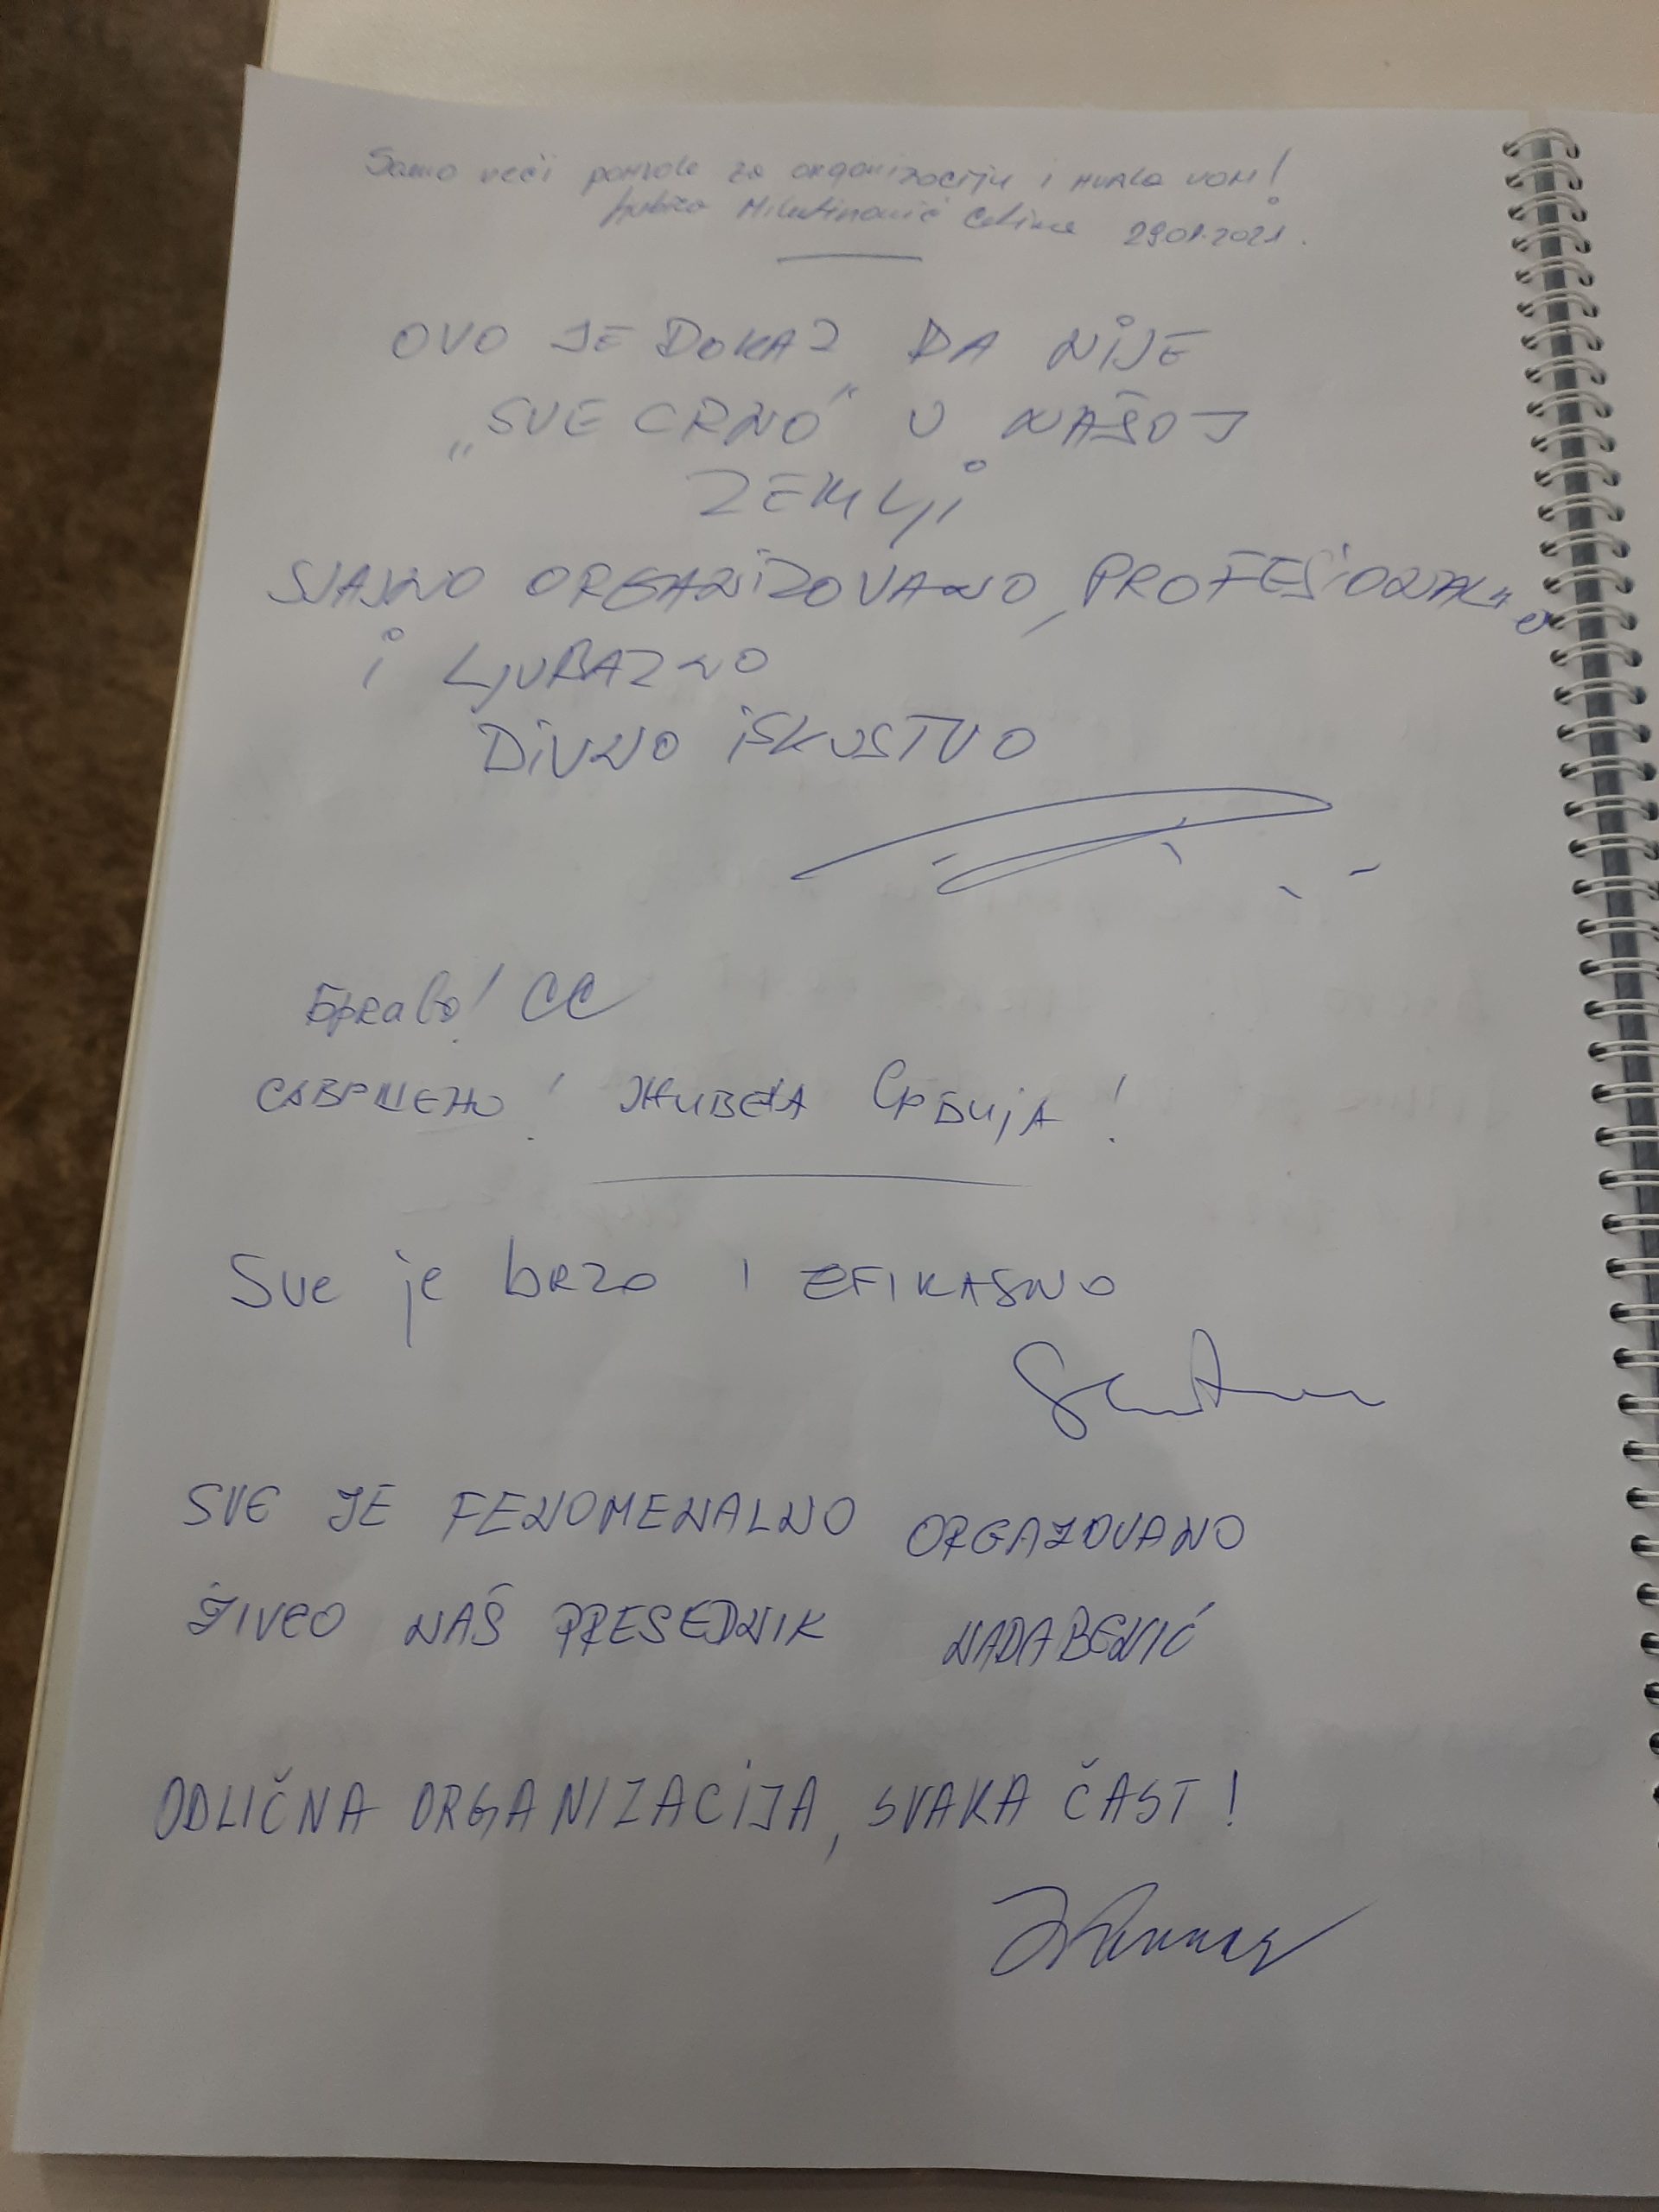 Samo veći pohvale za organizaciju i HVALA VAM!
Milutinović 29.01.2021.
OVO JE DOKAZ DA NIJE
„SVE CRNO“ U NAŠOJ
ZEMLJI
SJAJNO ORGANIZOVANO, PROFESIONALNO
I LJUBAZNO
DIVNO ISKUSTVO
Браво! СС
САВРШЕНО! ЖИВЕЛА СРБИЈА!
Sve je brzo I EFIKASNO
SVE JE FENOMENALNO ORGAZOVANO
ŽIVEO NAŠ PRESEDNIK NADABENIĆ
ODLIČNA ORGANIZACIJA, SVAKA ČAST!